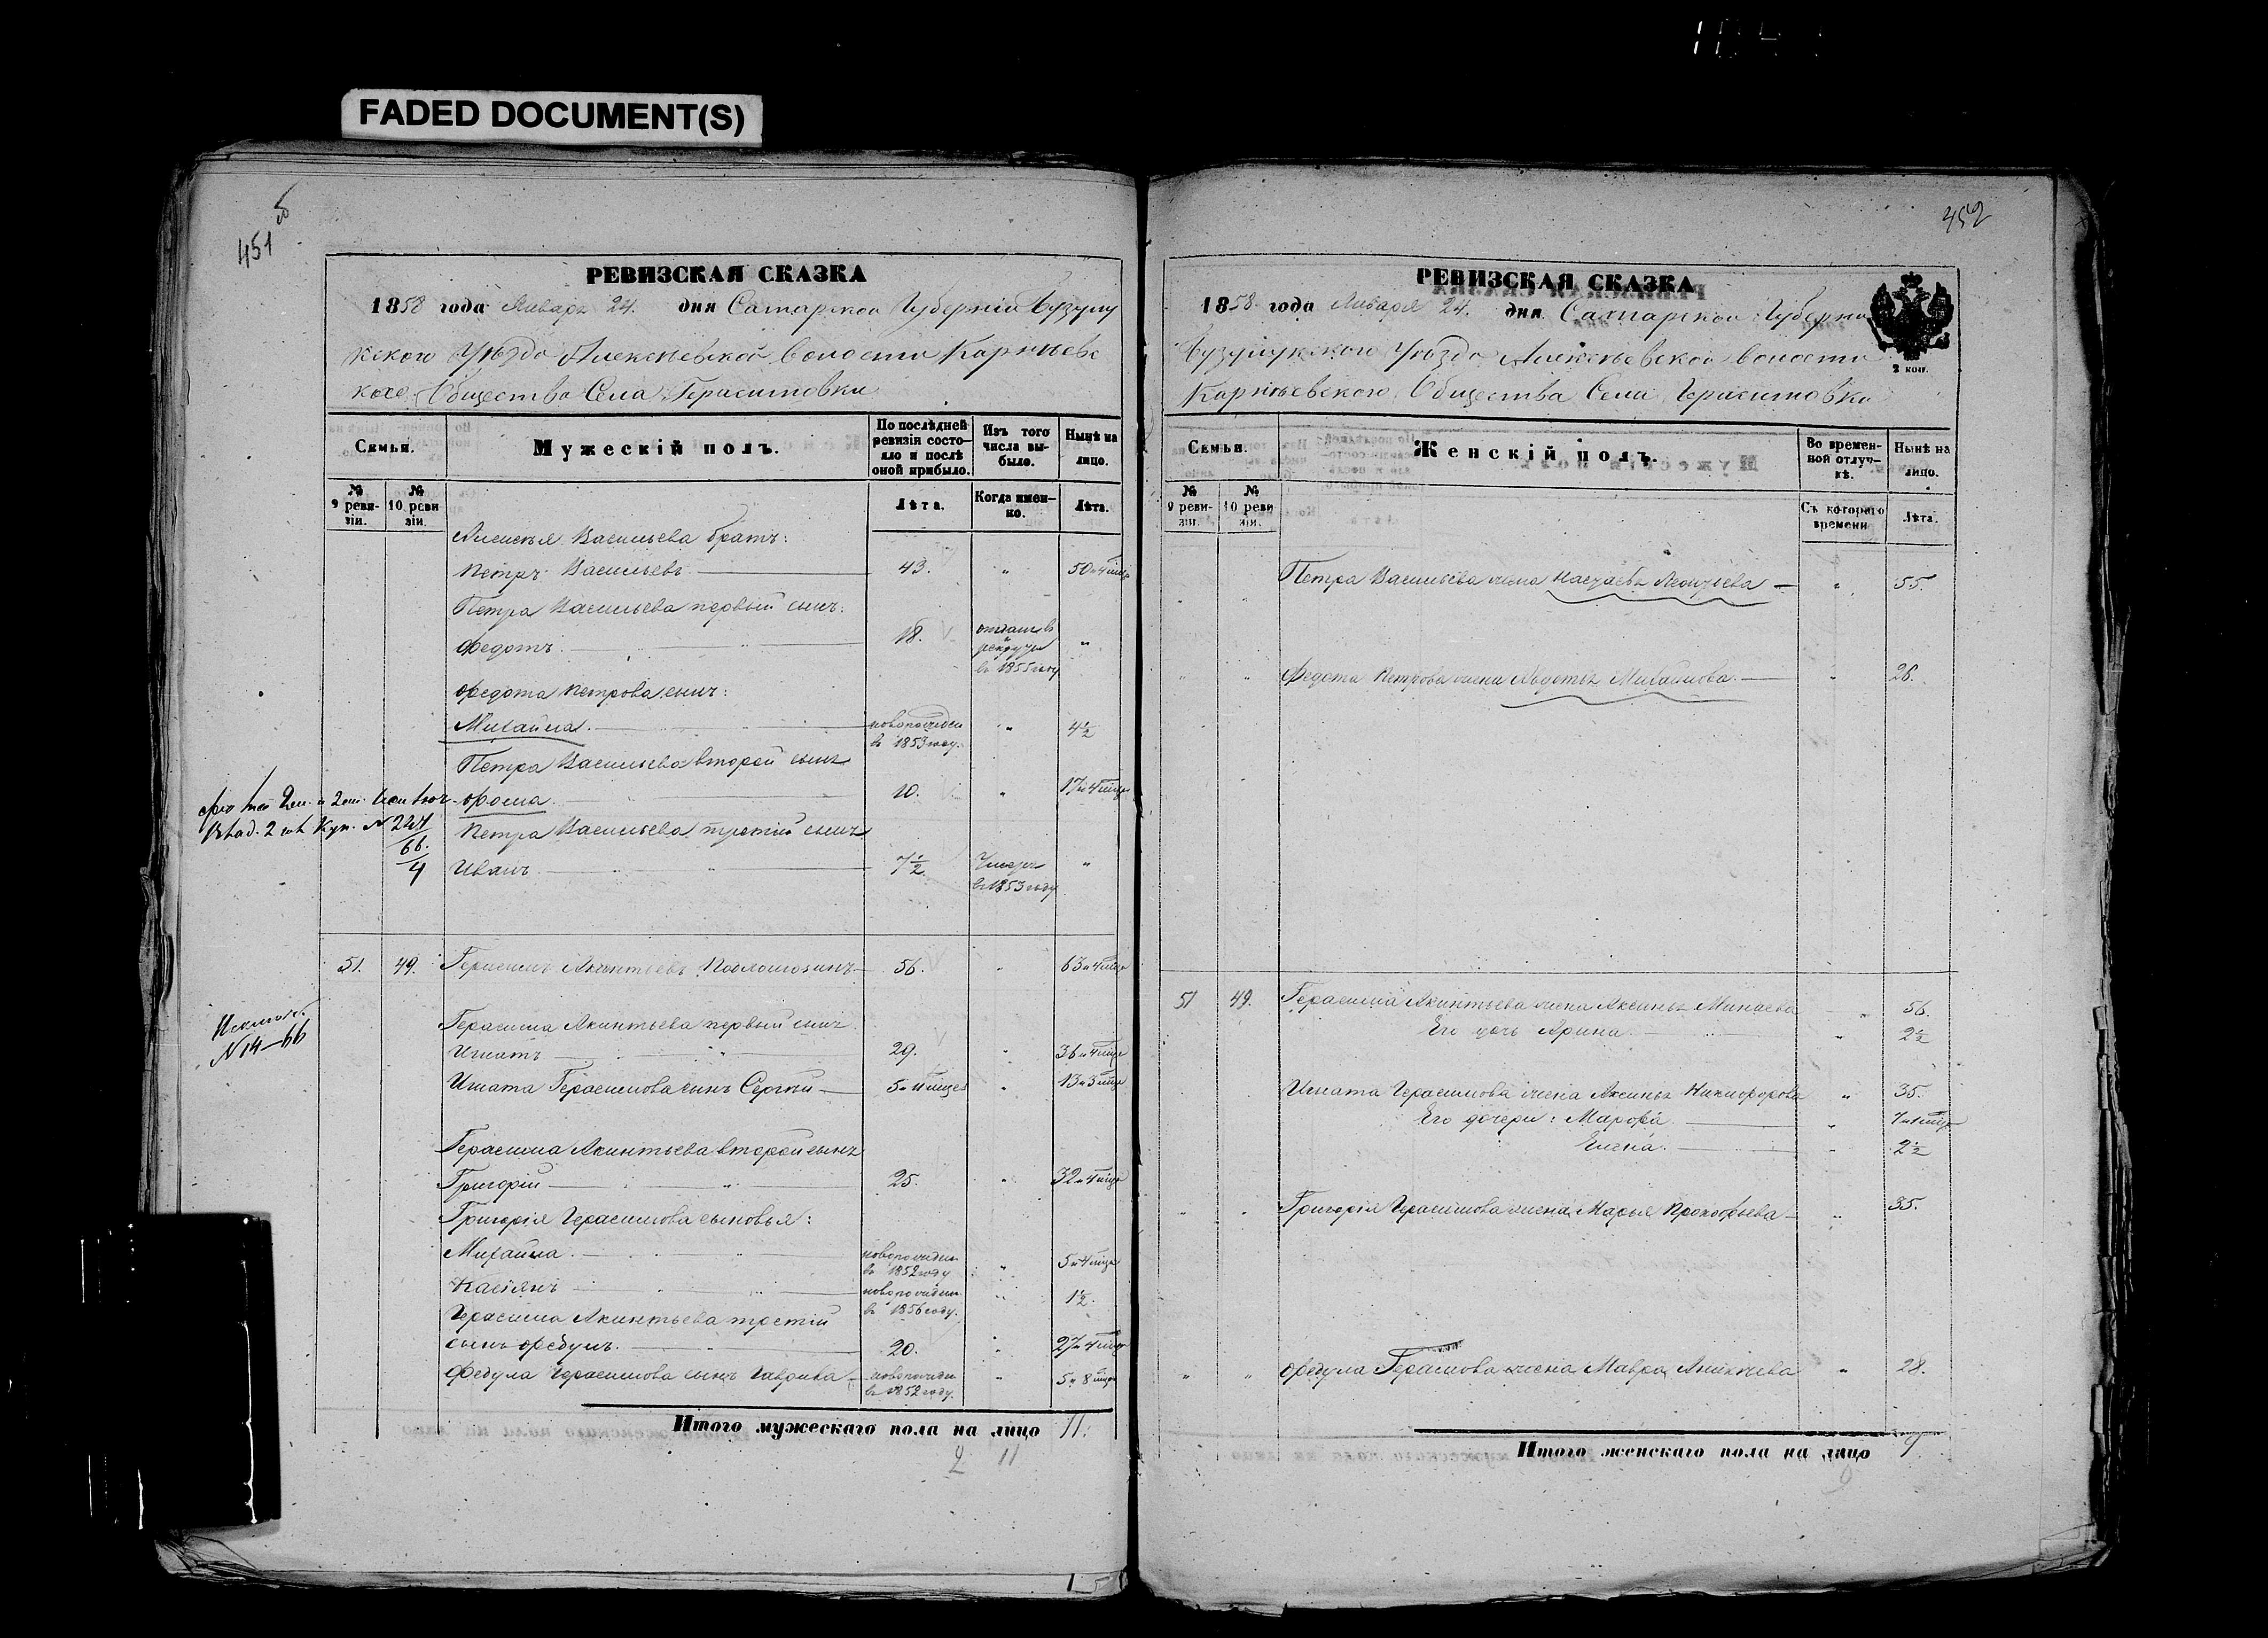 FADED DOCUMENT(S)
451 об
РЕВИЗСКАЯ СКАЗКА
1858 года Января 24. дня Самарской Губернiи Бузулу
кского Уѣзда Алексѣевской волости Корнѣевс
кого Общества Села Герасимовки
Семьи.
Мужескiй полъ.
По послѣдней ревизiи состо-яло и послѣ оной прибыло.
Изъ того числа вы-было.
Нынѣ на лицо.
№ 9 реви-зiи.
№ 10 реви зiи.
Лѣта.
Когда имен-но.
Лѣта.
Алексѣя Васильева братъ:
Петръ Васильевъ 43. " 50 и 4 мѣця
Петра Васильева первый сынъ:
Федотъ 18. отданъ в рекруты въ 1855 году "
Федота Петрова сынъ:
Михайла новорожден въ 1853 году. " 4½
Петра Васильева второй сынъ
Фома 10. " 17 и 4 мѣця
№ 227
66.
4
Петра Васильева третiй сынъ
Иванъ 7½ Умеръ въ 1853 году "
51. 49. Герасимъ Акинтьевъ 56. " 63 и 4 мѣця
Исключ.
N 14—66
Герасима Акинтьева первый сынъ
Игнатъ 29. " 36 и 4 мѣця
Игната Герасимова сынъ Сергѣй 5 и 11 мѣцев " 13 и 3 мѣця
Герасима Акинтьева второй сынъ
Григорiй 25. " 32 и 4 мѣця
Григорiя Герасимова сыновья:
Михайла новорожден въ 1852 году " 5 и 4 мѣця
Касiянъ новорожден въ 1856 году. " 1½.
Герасима Акинтьева третiй
сынъ Федулъ. 20. " 27 и 4 мѣця
Федула Герасимова сынъ Гаврила новорожден въ 1852 году. " 5 и 8 мѣця
Итого мужескаго пола на лицо 11.
2 11
452
РЕВИЗСКАЯ СКАЗКА
1858 года Января 24. дня Самарской Губернiи
Бузулукского Уѣзда Алексѣевской волости
Корнѣевского Общества Села Герасимовки
2 коп.
Семьи.
Женскiй полъ.
Во времен-ной отлуч-кѣ.
Нынѣ на лицо.
№ 9 реви-зiи.
№ 10 реви зiи.
Съ котораго времени
Лѣта.
Петра Васильева жена Настасья Леонтьева " 55.
Федота Петрова жена Авдотья Михайлова. " 26.
51 49. Герасима Акинтьева жена Аксинья Минаева " 56.
Его дочь Арина " 2½
Игната Герасимова жена Аксинья Никифорова " 35.
Его дочери: Марфа " 7 и 1 мѣця
Елена. " 2½
Григорiя Герасимова жена Марья Прокофьева " 35.
Федула Герасимова жена Мавра Аникiева " 28.
Итого женскаго пола на лицо 9.
9